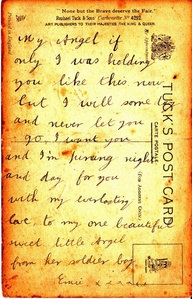 "None but the Brave deserve the Fair."
Raphael Tuck & Sons'
ART PUBLISHERS TO THEIR MAJESTIES THE KING & QUEEN.
TUCK'S POST CARD
CARTE POSTALE
My Angel if
only I was holding
you like this now
but I will some
and never let you
go, I want you
and I'm pining night
and day for you
with my everlasting
love to my one beautiful
sweet little Angel
from her soldier boy
Ernie